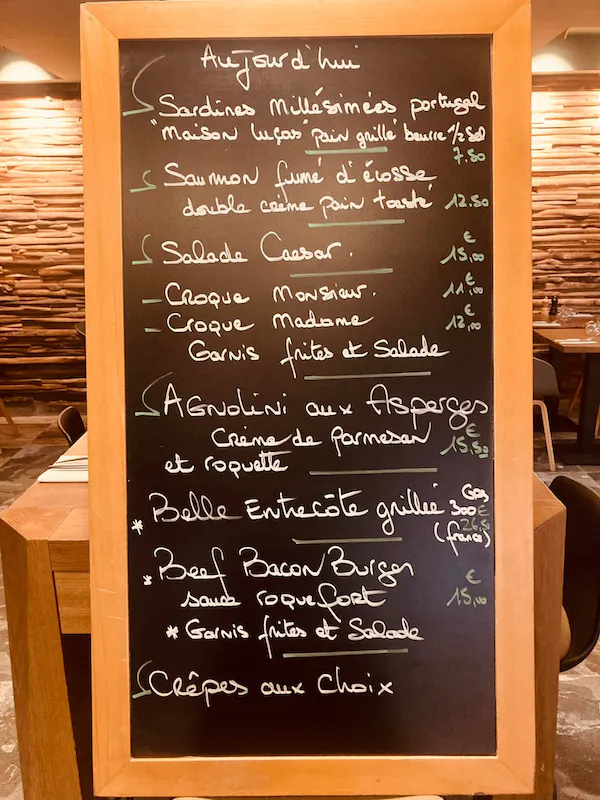 Aujourd'hui
Sardines Millésimées portugal
"Maison Luças" pain grillé beurre 1/2 sel
7.50
Saumon fumé d'écosse
double crème pain toasté 12.50
Salade Caesar. 15,00 €
Croque Monsieur. 11,00 €
Croque Madame 12,00 €
Garnis frites et Salade
Agnolini aux Asperges
Crème de parmesan 15,50 €
et roquette
* Belle Entrecôte grillée 300 Grs
26,50 €
(france)
* Beef Bacon Burger
sauce roquefort 15,00 €
* Garnis frites et Salade
Crêpes aux choix